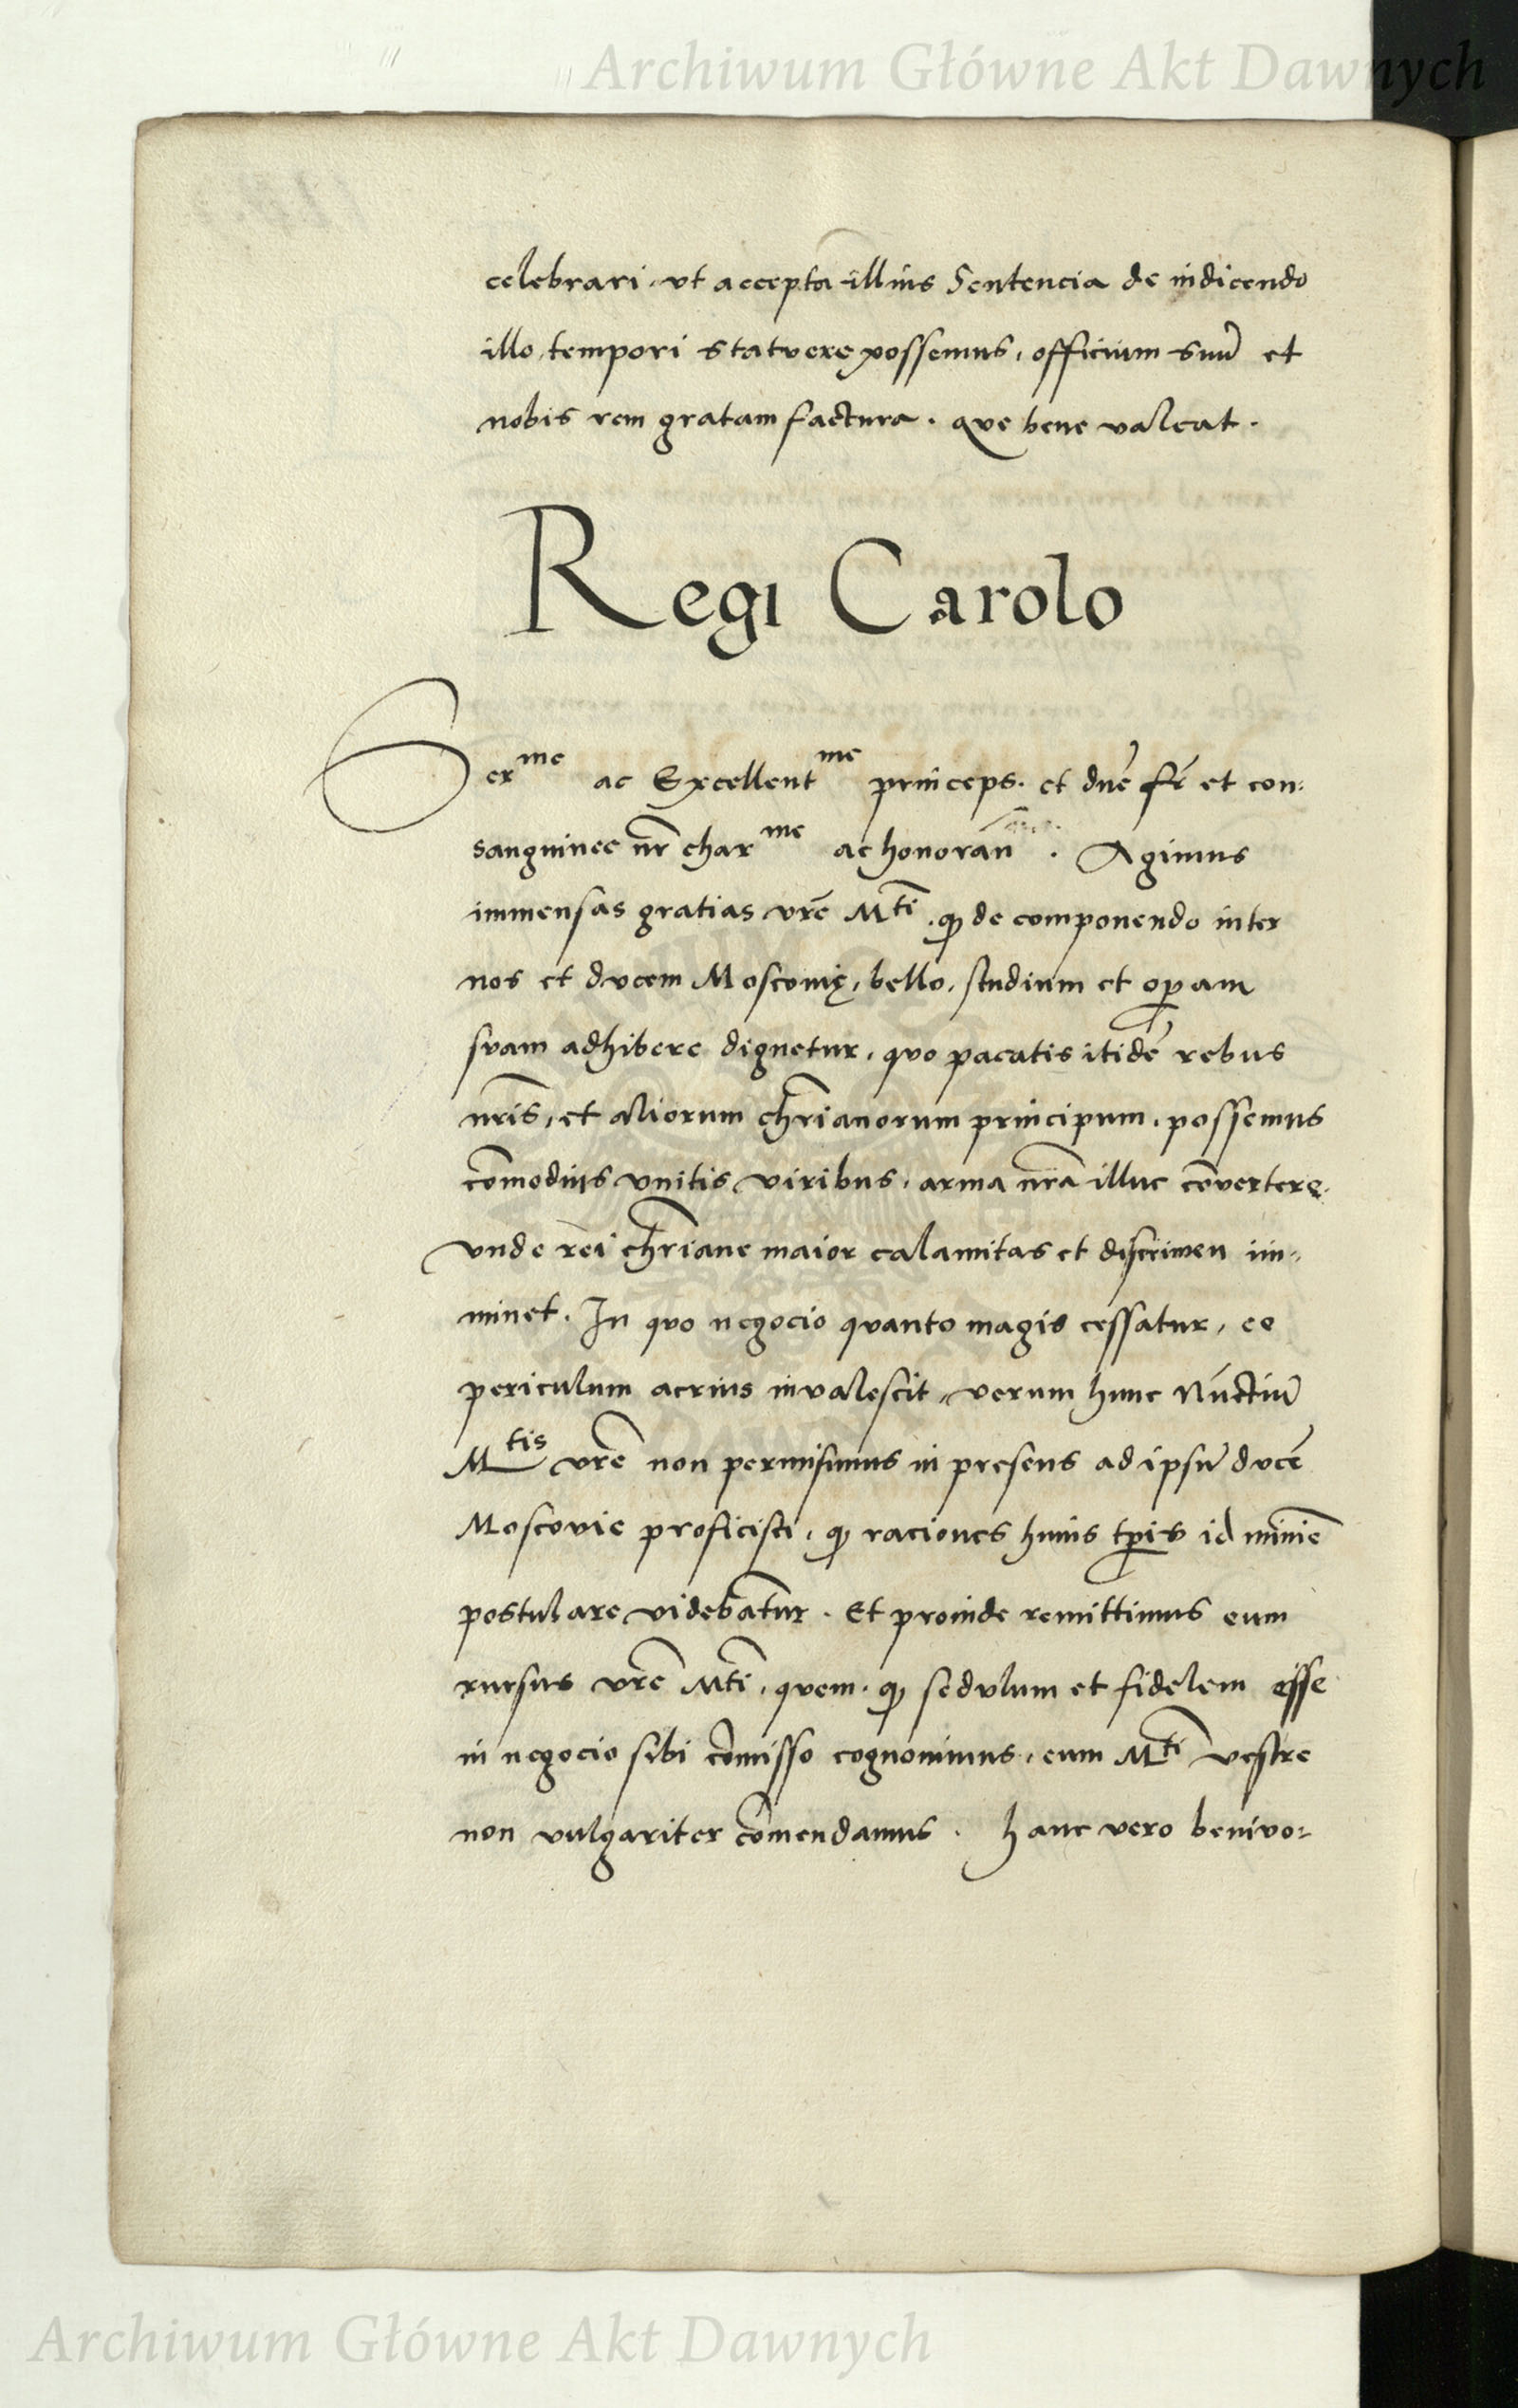 Archiwum Główne Akt Dawnych
celebrari, vt accepta illius Sentencia de indicendo
illo tempori statvere possemus, officium suũ et
nobis rem gratam factura. que bene valeat.
Regi Carolo
Serᵐᵉ ac Excellentᵐᵉ princeps. et dnẽ fr̃ et con:
sanguinee nr̃ charᵐᵉ ac honoran̄. Agimus
immensas gratias vrẽ Mᵗⁱ. ꝙ de componendo inter
nos et dvcem Moscovię, bello, studium et oꝑam
svam adhibere dignetur, qvo pacatis itidẽ rebus
nrĩs, et aliorum chrĩanorum principum, possemus
cõmodius vnitis viribus, arma nrã illuc cõvertere,
vnde rei chrĩane maior calamitas et discrimen im-
minet. In qvo negocio qvanto magis cessatur, eo
periculum acrius invalescit, verum hunc Nũctiũ
Mᵗⁱˢ vrẽ non permisimus in presens ad ipsũ dvcẽ
Moscovie proficisci, ꝙ raciones huius tꝑis id minimẽ
postulare videbãtur. Et proinde remittimus eum
rursus vrẽ Mᵗⁱ, qvem. ꝙ sedvlum et fidelem esse
in negocio sibi cõmisso cognovimus, eum Mᵗⁱ vestre
non vulgariter cõmendamus. hanc vero benivo-
Archiwum Główne Akt Dawnych